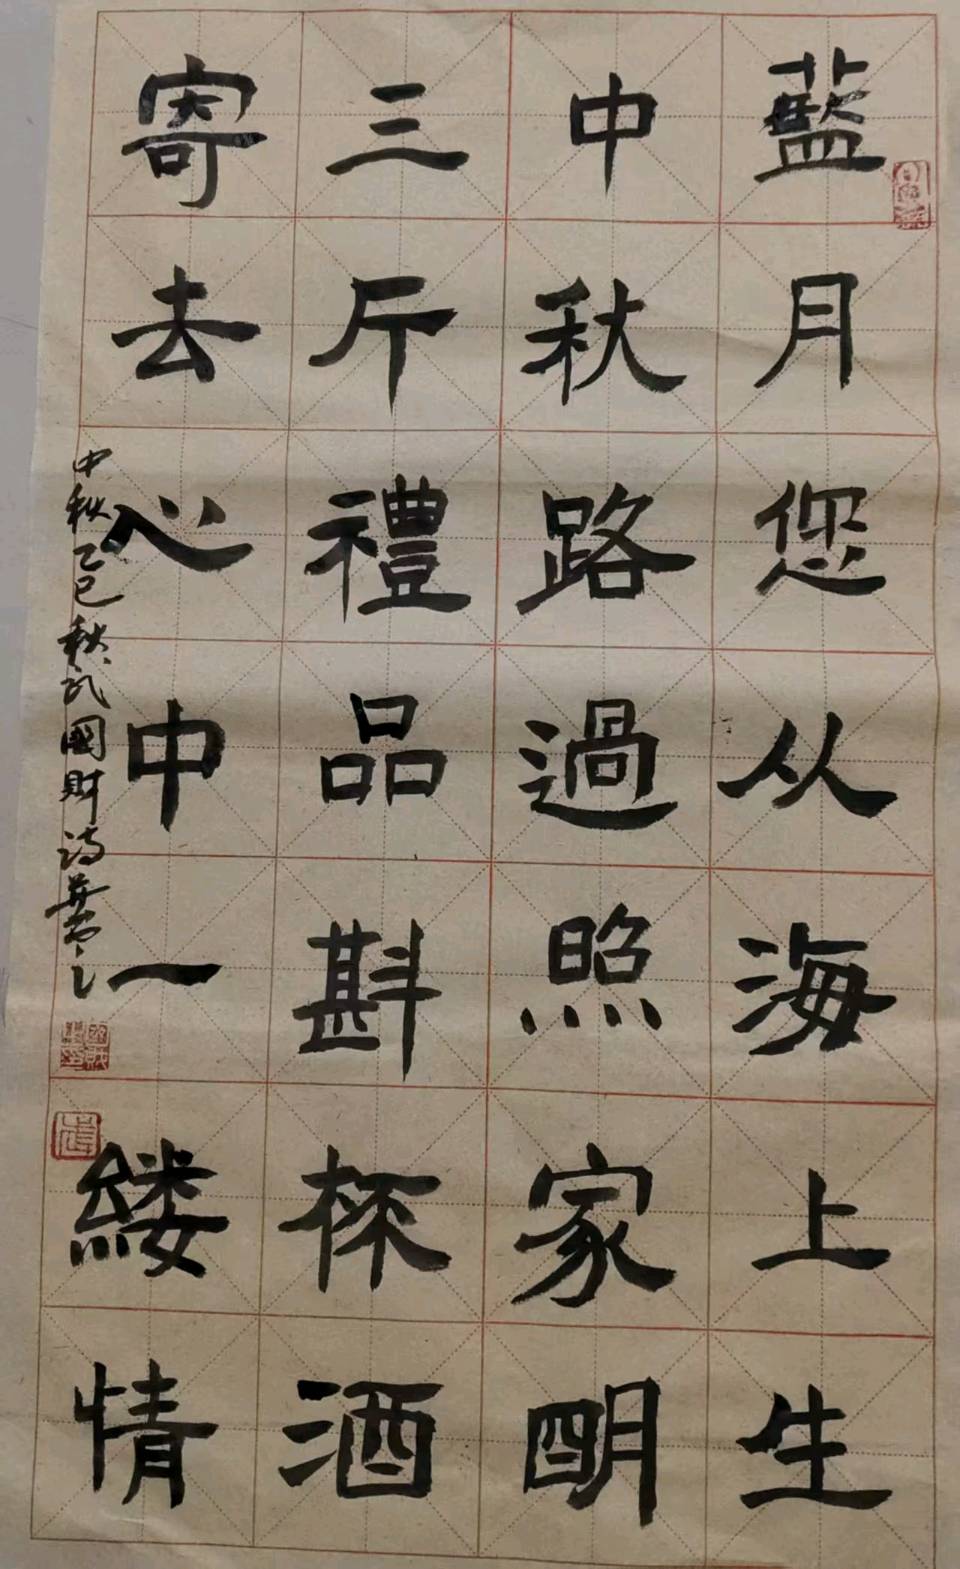 藍月您从海上生
中秋路過照家明
三斤禮品斟杯酒
寄去心中一縷情
中秋乙巳秋武國財詩并書之